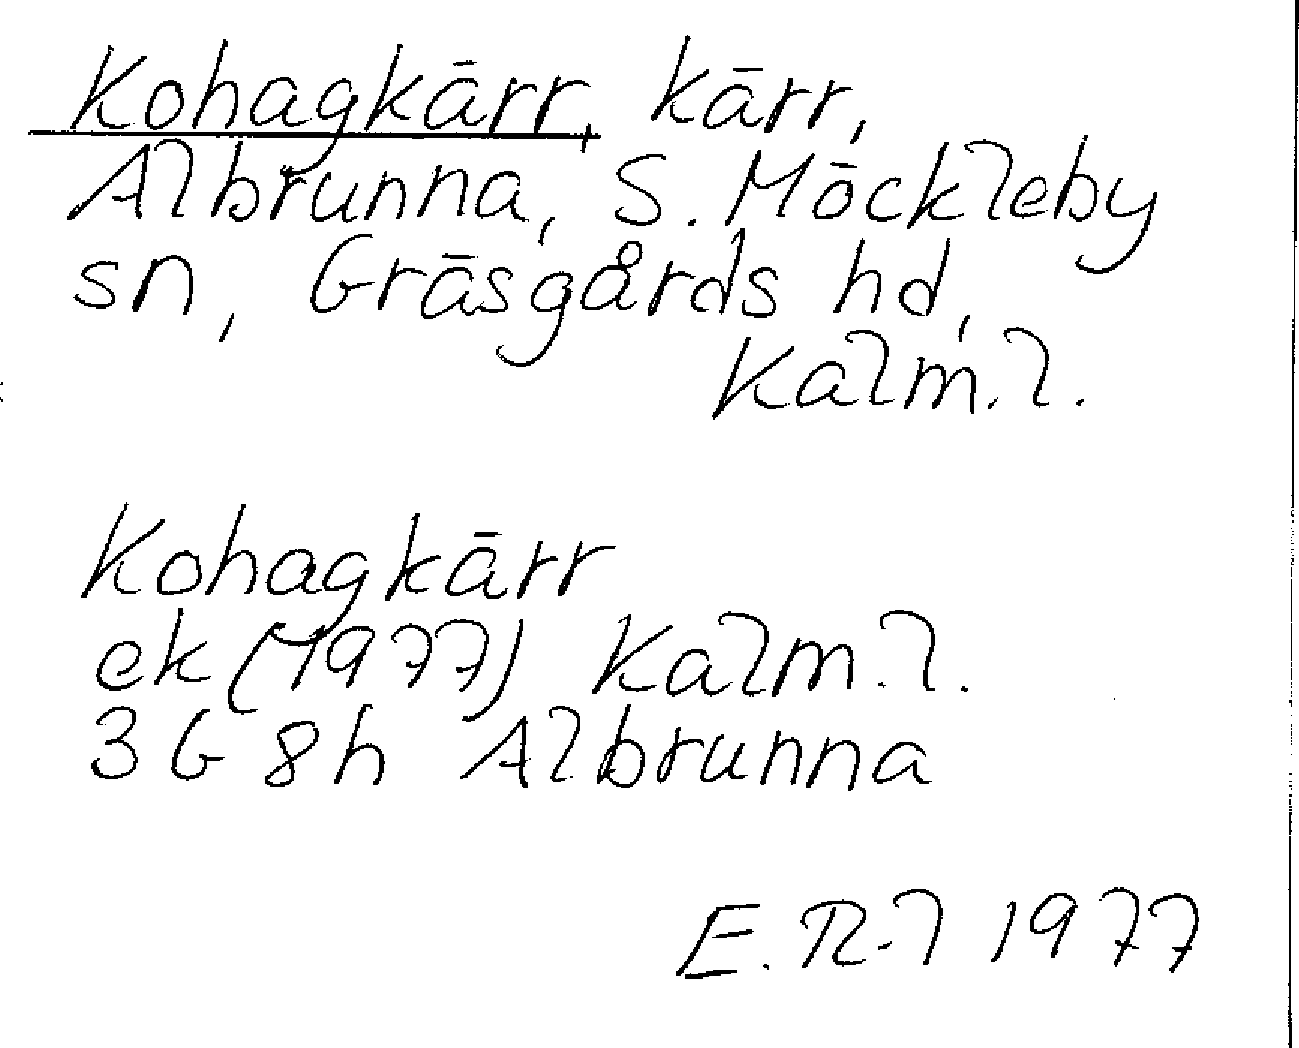 Kohagkärr, kärr,
Albrunna, S. Möckleby
sn, Gräsgårds hd,
Kalm.l.
Kohagkärr
ek (1977) Kalm.l.
3G 8h Albrunna
E. R-l 1977